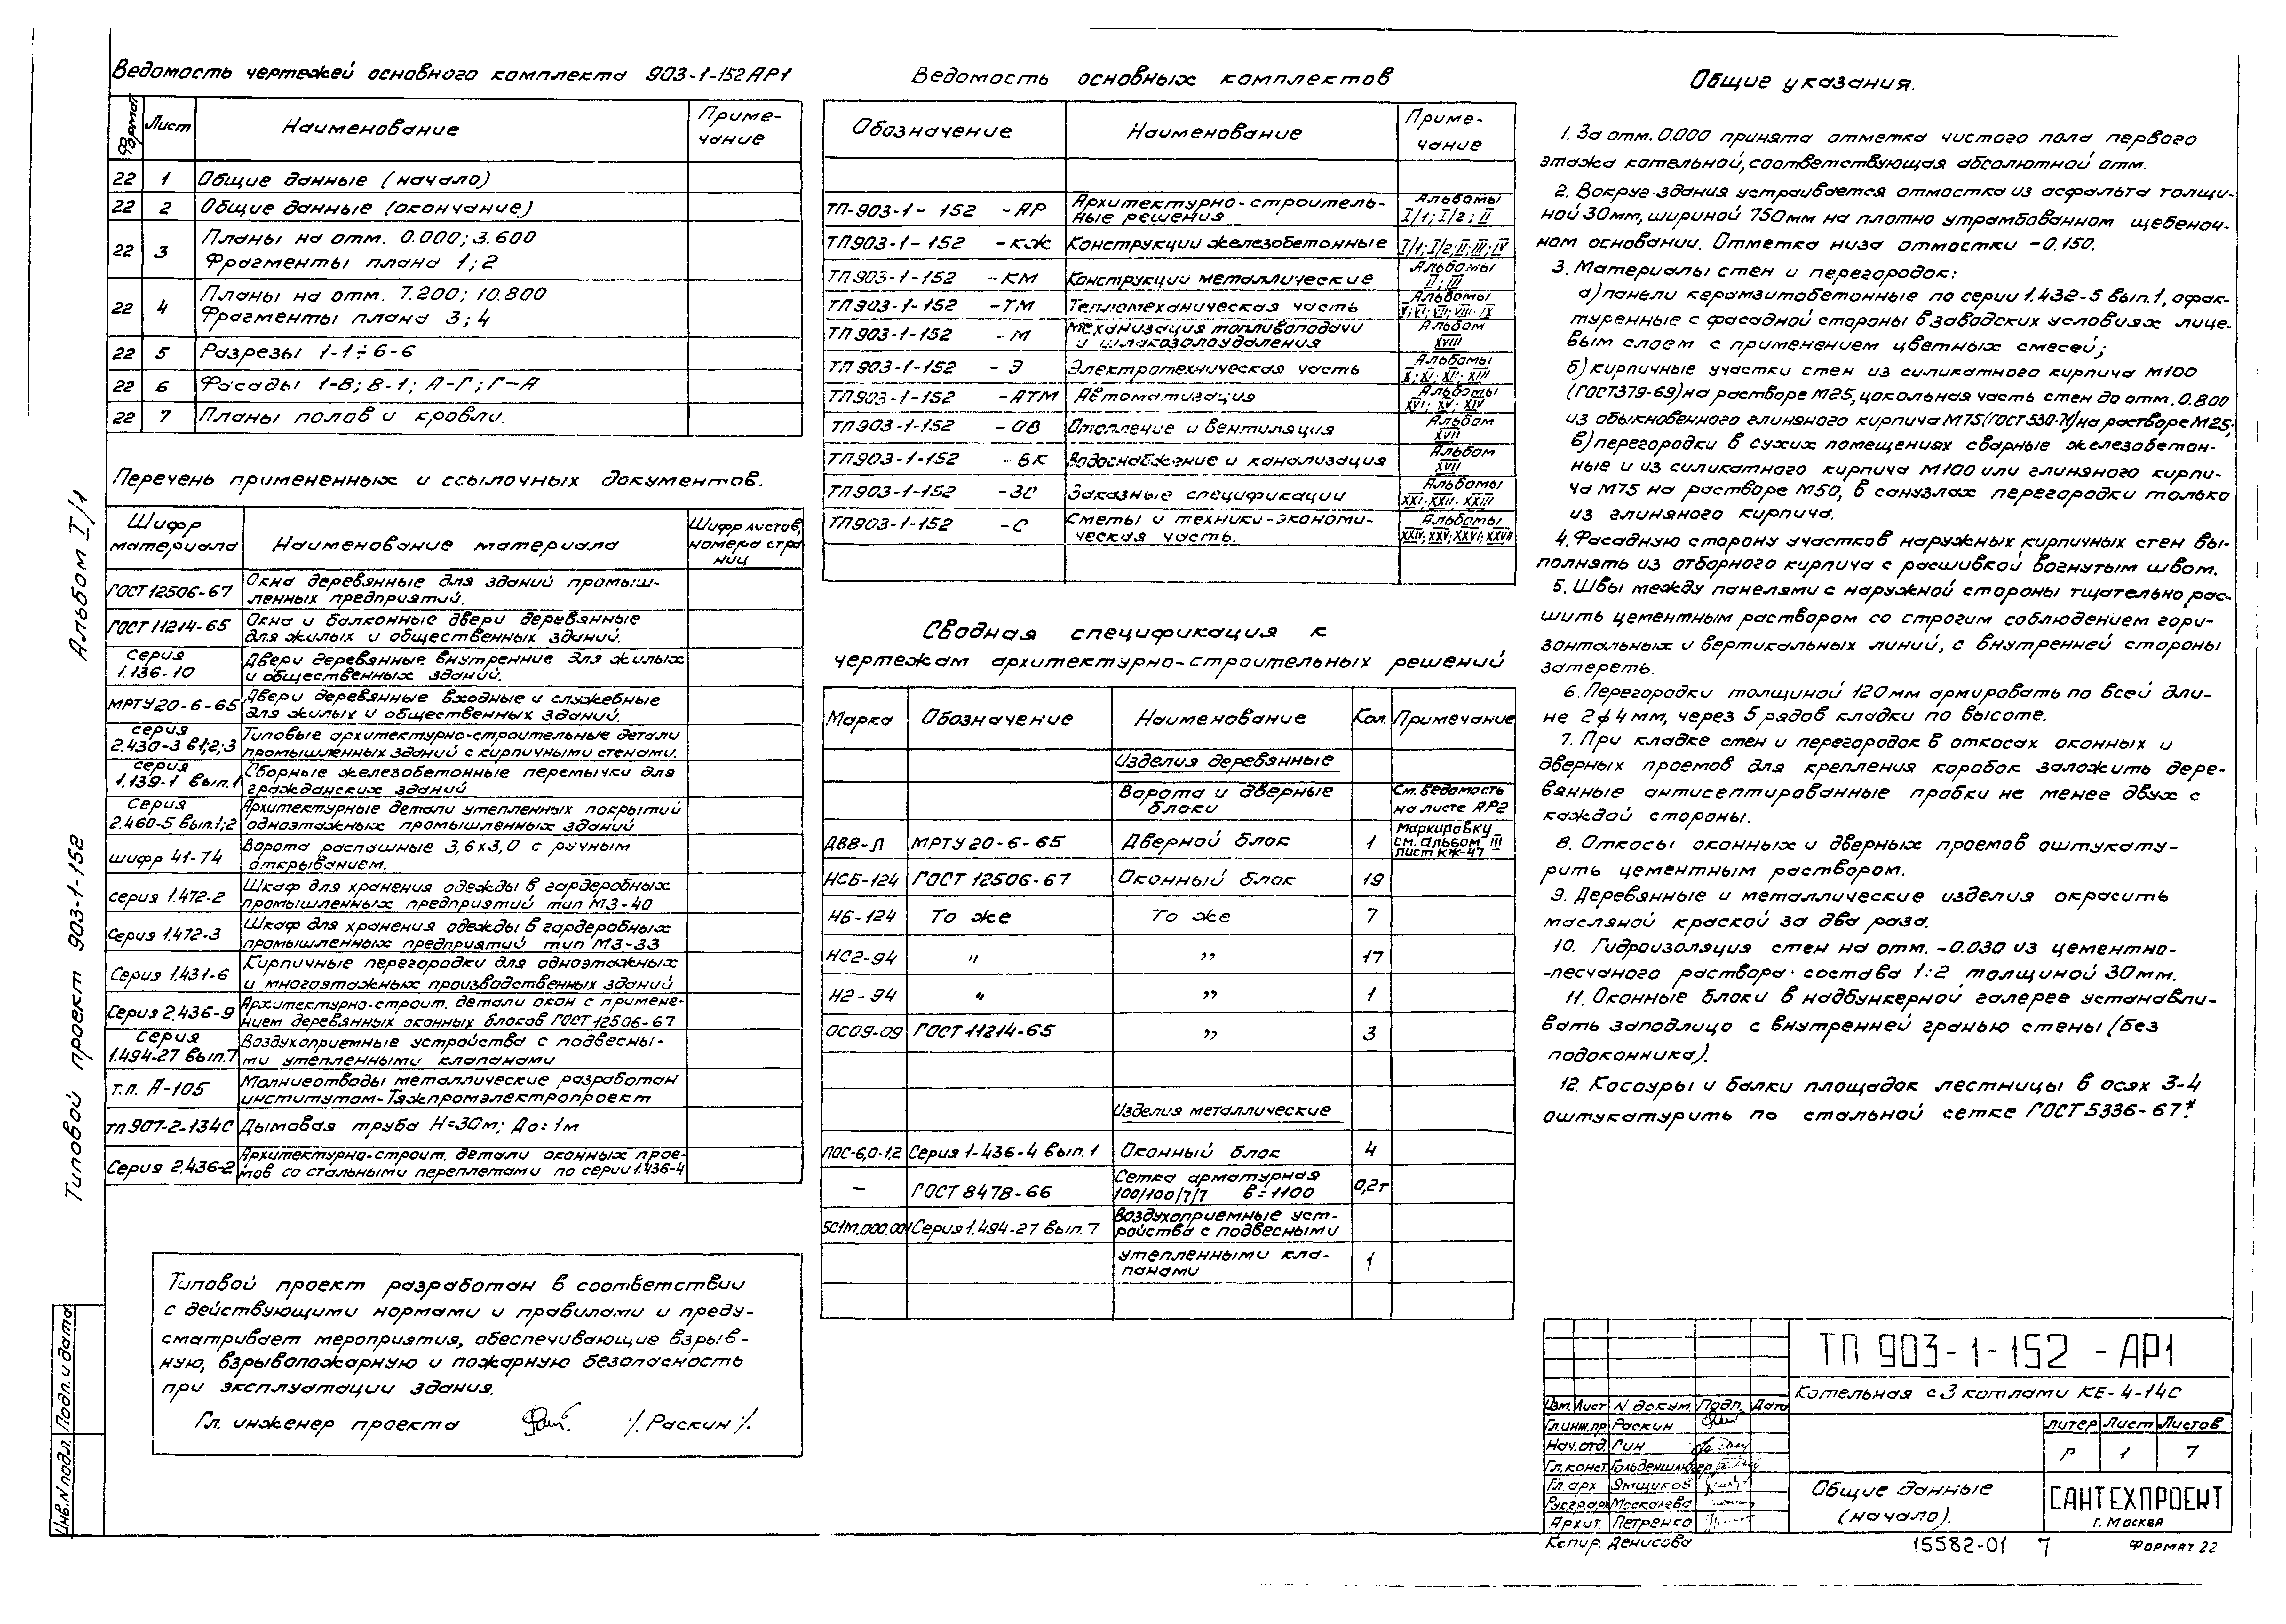 Ведомость чертежей основного комплекта 903-1-152 АР1
Формат Лист Наименование Приме-
чание
22 1 Общие данные (начало)
22 2 Общие данные (окончание)
22 3 Планы на отм. 0.000; 3.600
Фрагменты плана 1; 2
22 4 Планы на отм. 7.200; 10.800
Фрагменты плана 3; 4
22 5 Разрезы 1-1÷6-6
22 6 Фасады 1-8; 8-1; А-Г; Г-А
22 7 Планы полов и кровли.
Перечень примененных и ссылочных документов.
Шифр материала Наименование материала Шифр листов, номера стра-
ниц
ГОСТ 12506-67 Окна деревянные для зданий промыш-
ленных предприятий.
ГОСТ 11214-65 Окна и балконные двери деревянные
для жилых и общественных зданий.
Серия 1.136-10 Двери деревянные внутренние для жилых
и общественных зданий.
МРТУ 20-6-65 Двери деревянные входные и служебные
для жилых и общественных зданий.
серия 2.430-3 в1;2;3 Типовые архитектурно-строительные детали
промышленных зданий с кирпичными стенами.
серия 1.139-1 вып.1 Сборные железобетонные перемычки для
гражданских зданий
Серия 2.460-5 вып.1;2 Архитектурные детали утепленных покрытий
одноэтажных промышленных зданий
шифр 41-74 Ворота распашные 3,6х3,0 с ручным
открыванием.
серия 1.472-2 Шкаф для хранения одежды в гардеробных
промышленных предприятий тип МЗ-40
Серия 1.472-3 Шкаф для хранения одежды в гардеробных
промышленных предприятий тип МЗ-33
Серия 1.431-6 Кирпичные перегородки для одноэтажных
и многоэтажных производственных зданий
Серия 2.436-9 Архитектурно-строит. детали окон с примене-
нием деревянных оконных блоков ГОСТ 12506-67
Серия 1.494-27 вып.7 Воздухоприемные устройства с подвесны-
ми утепленными клапанами
т.п. А-105 Молниеотводы металлические разработан
институтом-Тяжпромэлектропроект
тп 907-2-134С Дымовая труба Н=30м; До=1м
Серия 2.436-2 Архитектурно-строит. детали оконных прое-
мов со стальными переплетами по серии 1.436-4
Типовой проект разработан в соответствии
с действующими нормами и правилами и преду-
сматривает мероприятия, обеспечивающие взрыв-
ную, взрывопожарную и пожарную безопасность
при эксплуатации здания.
Гл. инженер проекта /. Раскин /.
Ведомость основных комплектов
Обозначение Наименование Приме-
чание
ТП-903-1-152 -АР Архитектурно-строитель-
ные решения Альбомы
I/1; I/2; II
ТП903-1-152 -КЖ Конструкции железобетонные I/1; I/2; II; III; IV
ТП903-1-152 -КМ Конструкции металлические Альбомы
II; III
ТП903-1-152 -ТМ Тепломеханическая часть Альбомы
V; VI; VII; VIII; IX
ТП903-1-152 -М Механизация топливоподачи
и шлакозолоудаления Альбом
XVIII
ТП 903-1-152 -Э Электротехническая часть Альбомы
X; XI; XII; XIII
ТП903-1-152 -АТМ Автоматизация Альбомы
XVI; XV; XIV
ТП903-1-152 -ОВ Отопление и вентиляция Альбом
XVII
ТП903-1-152 -ВК Водоснабжение и канализация Альбом
XVII
ТП903-1-152 -ЗС Заказные спецификации Альбомы
XXI; XXII; XXIII
ТП903-1-152 -С Сметы и технико-экономи-
ческая часть. Альбомы
XXIV; XXV; XXVI; XXVII
Сводная спецификация к
чертежам архитектурно-строительных решений
Марка Обозначение Наименование Кол. Примечание
Изделия деревянные
Ворота и дверные
блоки См. ведомость
на листе АР2
ДВ8-Л МРТУ 20-6-65 Дверной блок 1 Маркировку
см. альбом III
лист КЖ-47
НС6-124 ГОСТ 12506-67 Оконный блок 19
Н6-124 То же То же 7
НС2-94 " " 17
Н2-94 " " 1
ОС09-09 ГОСТ 11214-65 " 3
Изделия металлические
ПОС-6,0-1,2 Серия 1-436-4 вып.1 Оконный блок 4
— ГОСТ 8478-66 Сетка арматурная
100/100/7/7 в=1100 0,2т
5С1М.000.00 Серия 1.494-27 вып. 7 Воздухоприемные уст-
ройства с подвесными
утепленными кла-
панами 1
Общие указания.
1. За отм. 0.000 принята отметка чистого пола первого
этажа котельной, соответствующая абсолютной отм.
2. Вокруг здания устраивается отмостка из асфальта толщи-
ной 30мм, шириной 750мм на плотно утрамбованном щебеноч-
ном основании. Отметка низа отмостки -0.150.
3. Материалы стен и перегородок:
а) панели керамзитобетонные по серии 1.432-5 вып.1, офак-
туренные с фасадной стороны в заводских условиях лице-
вым слоем с применением цветных смесей;
б) кирпичные участки стен из силикатного кирпича М100
(ГОСТ379-69) на растворе М25, цокольная часть стен до отм. 0.800
из обыкновенного глиняного кирпича М75 (ГОСТ 530-71) на растворе М25;
в) перегородки в сухих помещениях сварные железобетон-
ные и из силикатного кирпича М100 или глиняного кирпи-
ча М75 на растворе М50, в санузлах перегородки только
из глиняного кирпича.
4. Фасадную сторону участков наружных кирпичных стен вы-
полнять из отборного кирпича с расшивкой вогнутым швом.
5. Швы между панелями с наружной стороны тщательно рас-
шить цементным раствором со строгим соблюдением гори-
зонтальных и вертикальных линий, с внутренней стороны
затереть.
6. Перегородки толщиной 120мм армировать по всей дли-
не 2ф4мм, через 5 рядов кладки по высоте.
7. При кладке стен и перегородок в откосах оконных и
дверных проемов для крепления коробок заложить дере-
вянные антисептированные пробки не менее двух с
каждой стороны.
8. Откосы оконных и дверных проемов оштукату-
рить цементным раствором.
9. Деревянные и металлические изделия окрасить
масляной краской за два раза.
10. Гидроизоляция стен на отм. -0.030 из цементно-
-песчаного раствора состава 1:2 толщиной 30мм.
11. Оконные блоки в надбункерной галерее устанавли-
вать заподлицо с внутренней гранью стены (без
подоконника).
12. Косоуры и балки площадок лестницы в осях 3-4
оштукатурить по стальной сетке ГОСТ 5336-67*
ТП 903-1-152 -АР1
Котельная с 3 котлами КЕ-4-14С
Изм. Лист N докум. Подп. Дата
Гл.инж.пр Раскин
Нач.отд. Гин
Гл.конст. Гольденшлюгер
Гл.арх Ямщиков
Рук.гр.арх Москалева
Архит. Петренко
Копир. Денисова
литер Лист Листов
Р 1 7
Общие данные
(начало).
САНТЕХПРОЕКТ
г. Москва
15582-01 7 Формат 22
Типовой проект 903-1-152 Альбом I/1
Инв.N подл. Подп. и дата